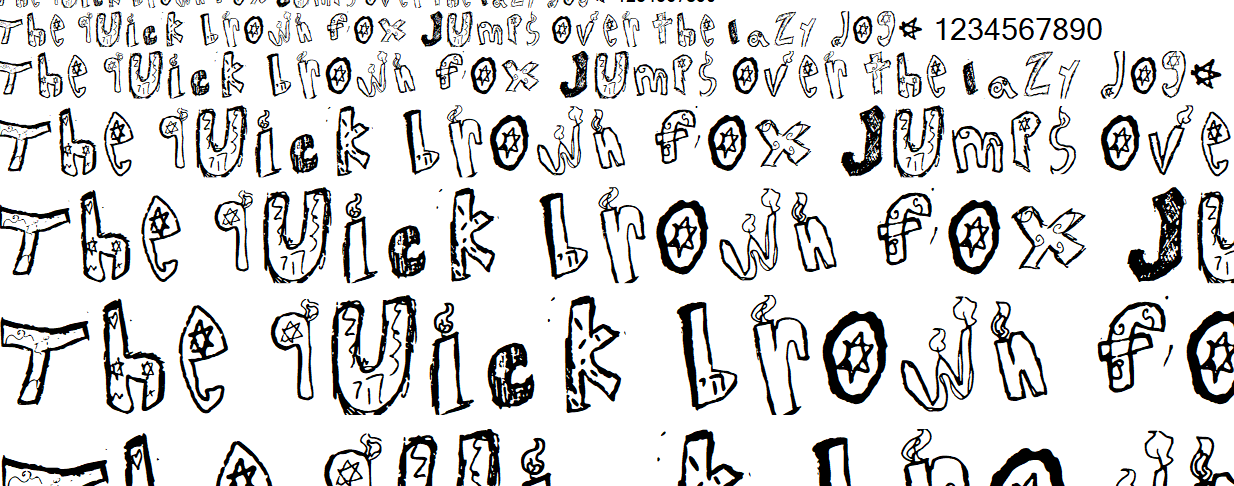 The quick brown fox jumps over the lazy dog. 1234567890
The quick brown fox jumps over the lazy dog.
The quick brown fox jumps ove
The quick brown fox ju
The quick brown fo